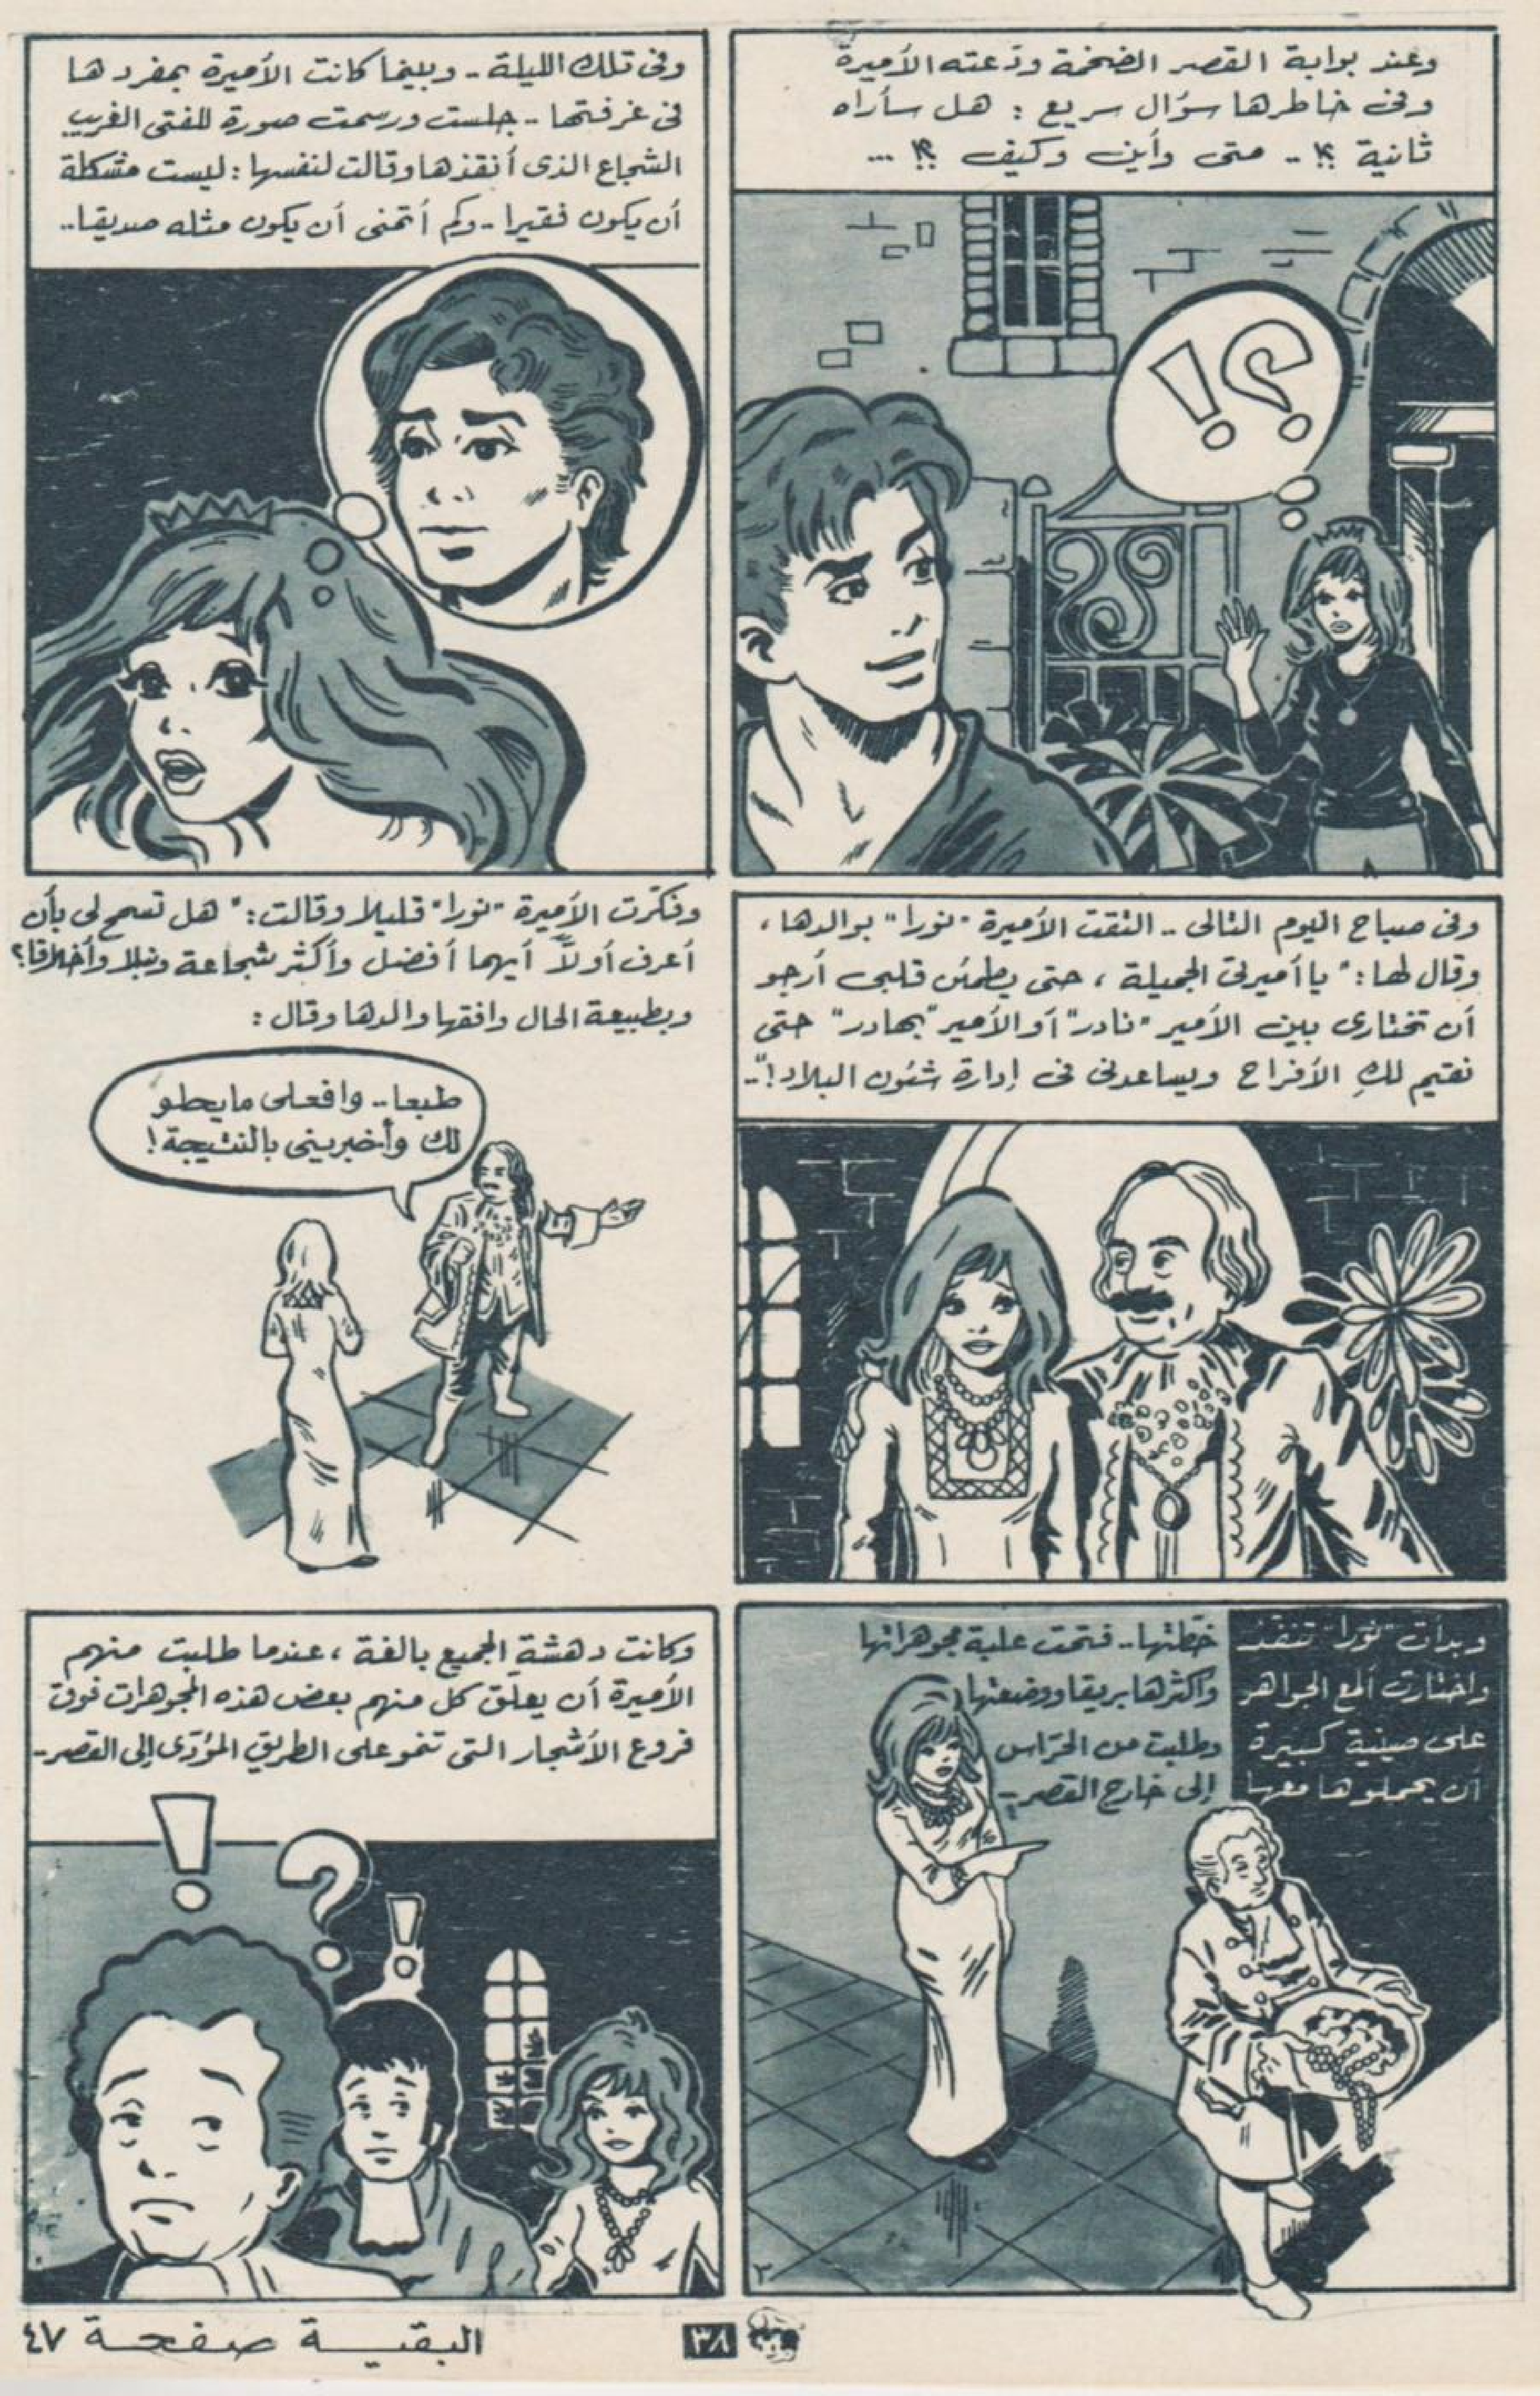 وعند بوابة القصر الضخمة ودعته الأميرة
وفى خاطرها سؤال سريع : هل سأراه
ثانية ؟! .. متى وأين وكيف ؟! ...
؟!
وفى تلك الليلة .. وبينما كانت الأميرة بمفردها
فى غرفتها .. جلست ورسمت صورة للفتى الغريب
الشجاع الذى أنقذها وقالت لنفسها : ليست مشكلة
أن يكون فقيرا .. وكم أتمنى أن يكون مثله صديقا ..
وفى صباح اليوم التالى .. التقت الأميرة "نورا" بوالدها ،
وقال لها : " يا أميرتى الجميلة ، حتى يطمئن قلبى أرجو
أن تختارى بين الأمير "نادر" أو الأمير "بهادر" حتى
نقيم لكِ الأفراح ويساعدنى فى إدارة شئون البلاد ! " ..
وفكّرت الأميرة "نورا" قليلا وقالت : " هل تسمح لى بأن
أعرف أولاً أيهما أفضل وأكثر شجاعة ونبلا وأخلاقا ؟
وبطبيعة الحال وافقها والدها وقال :
طبعا .. وافعلى مايحلو
لك وأخبرينى بالنتيجة !
وبدأت "نورا" تنفيذ خطتها .. فتحت علبة مجوهراتها
واختارت ألمع الجواهر وأكثرها بريقا ووضعتها
على صينية كبيرة وطلبت من الحرّاس
أن يحملوها معها إلى خارج القصر ..
٢
وكانت دهشة الجميع بالغة ، عندما طلبت منهم
الأميرة أن يعلق كل منهم بعض هذه المجوهرات فوق
فروع الأشجار التى تنمو على الطريق المؤدّى إلى القصر ..
! ? !
٣٨
البقية صفحة ٤٧